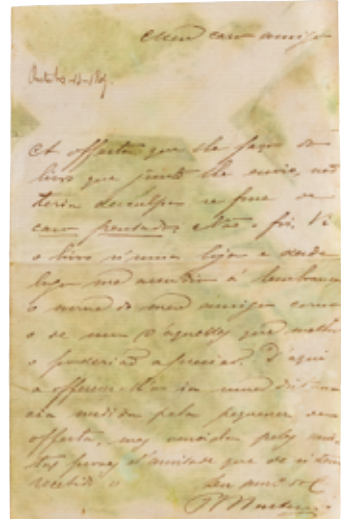 Meu caro amigo
A offerta que lhe faço do
livro que junto lhe envio, não
teria desculpa se fosse de
caso pensado. Não o foi. Vi
o livro n'uma loja e desde
logo me acendiu á lembrança
o nome do meu amigo como
o de um d'aquelles que melhor
o poderiam apreciar. D'aqui
a offerecer-lh'o ia uma distan
cia medida pela pequenez da
offerta, mas vencida pelas mui
tas provas d'amizade que de si tenho
recebido